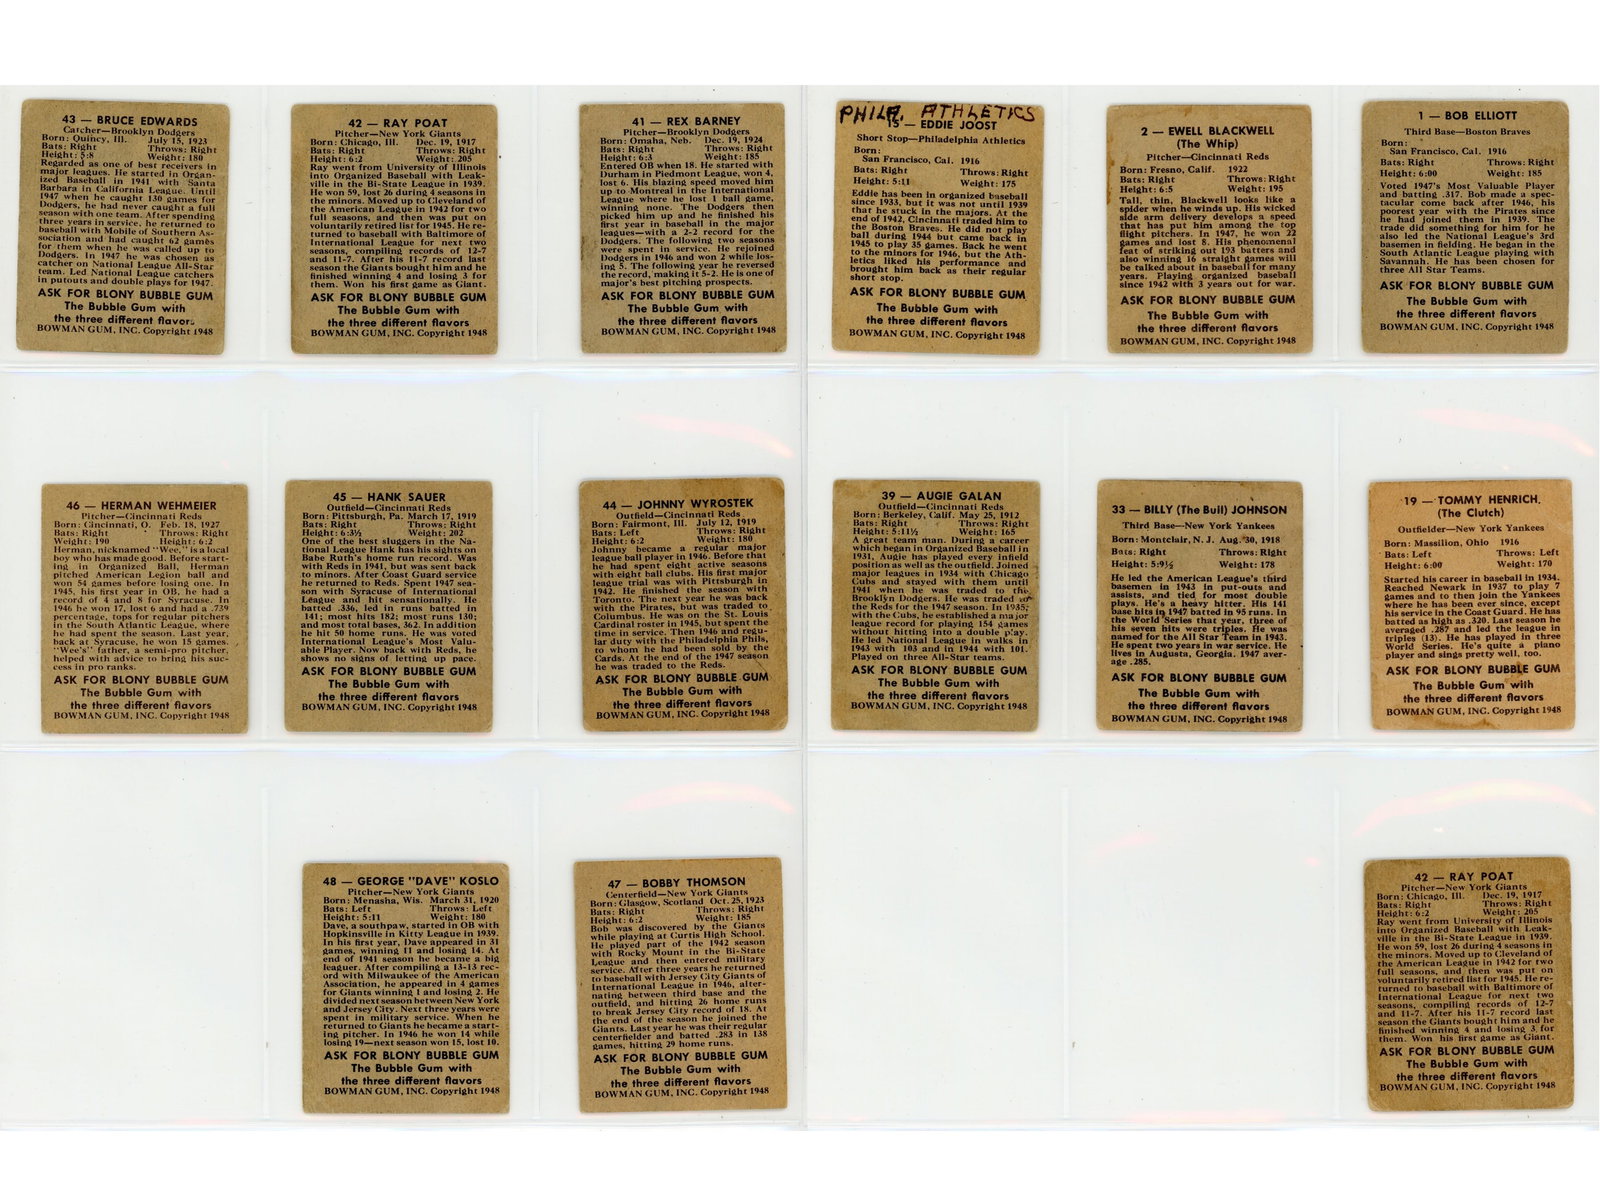 43 — BRUCE EDWARDS
Catcher—Brooklyn Dodgers
Born: Quincy, Ill. July 15, 1923
Bats: Right Throws: Right
Height: 5:8 Weight: 180
Regarded as one of best receivers in
major leagues. He started in Organ-
ized Baseball in 1941 with Santa
Barbara in California League. Until
1947 when he caught 130 games for
Dodgers, he had never caught a full
season with one team. After spending
three years in service, he returned to
baseball with Mobile of Southern As-
sociation and had caught 62 games
for them when he was called up to
Dodgers. In 1947 he was chosen as
catcher on National League All-Star
team. Led National League catchers
in putouts and double plays for 1947.
ASK FOR BLONY BUBBLE GUM
The Bubble Gum with
the three different flavors
BOWMAN GUM, INC. Copyright 1948
42 — RAY POAT
Pitcher—New York Giants
Born: Chicago, Ill. Dec. 19, 1917
Bats: Right Throws: Right
Height: 6:2 Weight: 205
Ray went from University of Illinois
into Organized Baseball with Leak-
ville in the Bi-State League in 1939.
He won 59, lost 26 during 4 seasons in
the minors. Moved up to Cleveland of
the American League in 1942 for two
full seasons, and then was put on
voluntarily retired list for 1945. He re-
turned to baseball with Baltimore of
International League for next two
seasons, compiling records of 12-7
and 11-7. After his 11-7 record last
season the Giants bought him and he
finished winning 4 and losing 3 for
them. Won his first game as Giant.
ASK FOR BLONY BUBBLE GUM
The Bubble Gum with
the three different flavors
BOWMAN GUM, INC. Copyright 1948
41 — REX BARNEY
Pitcher—Brooklyn Dodgers
Born: Omaha, Neb. Dec. 19, 1924
Bats: Right Throws: Right
Height: 6:3 Weight: 185
Entered OB when 18. He started with
Durham in Piedmont League, won 4,
lost 6. His blazing speed moved him
up to Montreal in the International
League where he lost 1 ball game,
winning none. The Dodgers then
picked him up and he finished his
first year in baseball in the major
leagues—with a 2-2 record for the
Dodgers. The following two seasons
were spent in service. He rejoined
Dodgers in 1946 and won 2 while los-
ing 5. The following year he reversed
the record, making it 5-2. He is one of
major's best pitching prospects.
ASK FOR BLONY BUBBLE GUM
The Bubble Gum with
the three different flavors
BOWMAN GUM, INC. Copyright 1948
PHILA. ATHLETICS
15 — EDDIE JOOST
Short Stop—Philadelphia Athletics
Born:
San Francisco, Cal. 1916
Bats: Right Throws: Right
Height: 5:11 Weight: 175
Eddie has been in organized baseball
since 1933, but it was not until 1939
that he stuck in the majors. At the
end of 1942, Cincinnati traded him to
the Boston Braves. He did not play
ball during 1944 but came back in
1945 to play 35 games. Back he went
to the minors for 1946, but the Ath-
letics liked his performance and
brought him back as their regular
short stop.
ASK FOR BLONY BUBBLE GUM
The Bubble Gum with
the three different flavors
BOWMAN GUM, INC. Copyright 1948
2 — EWELL BLACKWELL
(The Whip)
Pitcher—Cincinnati Reds
Born: Fresno, Calif. 1922
Bats: Right Throws: Right
Height: 6:5 Weight: 195
Tall, thin, Blackwell looks like a
spider when he winds up. His wicked
side arm delivery develops a speed
that has put him among the top
flight pitchers. In 1947, he won 22
games and lost 8. His phenomenal
feat of striking out 193 batters and
also winning 16 straight games will
be talked about in baseball for many
years. Playing organized baseball
since 1942 with 3 years out for war.
ASK FOR BLONY BUBBLE GUM
The Bubble Gum with
the three different flavors
BOWMAN GUM, INC. Copyright 1948
1 — BOB ELLIOTT
Third Base—Boston Braves
Born:
San Francisco, Cal. 1916
Bats: Right Throws: Right
Height: 6:00 Weight: 185
Voted 1947's Most Valuable Player
and batting .317. Bob made a spec-
tacular come back after 1946, his
poorest year with the Pirates since
he had joined them in 1939. The
trade did something for him for he
also led the National League's 3rd
basemen in fielding. He began in the
South Atlantic League playing with
Savannah. He has been chosen for
three All Star Teams.
ASK FOR BLONY BUBBLE GUM
The Bubble Gum with
the three different flavors
BOWMAN GUM, INC. Copyright 1948
46 — HERMAN WEHMEIER
Pitcher—Cincinnati Reds
Born: Cincinnati, O. Feb. 18, 1927
Bats: Right Throws: Right
Weight: 190 Height: 6:2
Herman, nicknamed "Wee," is a local
boy who has made good. Before start-
ing in Organized Ball, Herman
pitched American Legion ball and
won 54 games before losing one. In
1945, his first year in OB, he had a
record of 4 and 8 for Syracuse. In
1946 he won 17, lost 6 and had a .739
percentage, tops for regular pitchers
in the South Atlantic League, where
he had spent the season. Last year,
back at Syracuse, he won 15 games.
"Wee's" father, a semi-pro pitcher,
helped with advice to bring his suc-
cess in pro ranks.
ASK FOR BLONY BUBBLE GUM
The Bubble Gum with
the three different flavors
BOWMAN GUM, INC. Copyright 1948
45 — HANK SAUER
Outfield—Cincinnati Reds
Born: Pittsburgh, Pa. March 17, 1919
Bats: Right Throws: Right
Height: 6:3½ Weight: 202
One of the best sluggers in the Na-
tional League Hank has his sights on
Babe Ruth's home run record. Was
with Reds in 1941, but was sent back
to minors. After Coast Guard service
he returned to Reds. Spent 1947 sea-
son with Syracuse of International
League and hit sensationally. He
batted .336, led in runs batted in
141; most hits 182; most runs 130;
and most total bases, 362. In addition
he hit 50 home runs. He was voted
International League's Most Valu-
able Player. Now back with Reds, he
shows no signs of letting up pace.
ASK FOR BLONY BUBBLE GUM
The Bubble Gum with
the three different flavors
BOWMAN GUM, INC. Copyright 1948
44 — JOHNNY WYROSTEK
Outfield—Cincinnati Reds
Born: Fairmont, Ill. July 12, 1919
Bats: Left Throws: Right
Height: 6:2 Weight: 180
Johnny became a regular major
league ball player in 1946. Before that
he had spent eight active seasons
with eight ball clubs. His first major
league trial was with Pittsburgh in
1942. He finished the season with
Toronto. The next year he was back
with the Pirates, but was traded to
Columbus. He was on the St. Louis
Cardinal roster in 1945, but spent the
time in service. Then 1946 and regu-
lar duty with the Philadelphia Phils,
to whom he had been sold by the
Cards. At the end of the 1947 season
he was traded to the Reds.
ASK FOR BLONY BUBBLE GUM
The Bubble Gum with
the three different flavors
BOWMAN GUM, INC. Copyright 1948
39 — AUGIE GALAN
Outfield—Cincinnati Reds
Born: Berkeley, Calif. May 25, 1912
Bats: Right Throws: Right
Height: 5:11½ Weight: 165
A great team man. During a career
which began in Organized Baseball in
1931, Augie has played every infield
position as well as the outfield. Joined
major leagues in 1934 with Chicago
Cubs and stayed with them until
1941 when he was traded to the
Brooklyn Dodgers. He was traded to
the Reds for the 1947 season. In 1935,
with the Cubs, he established a major
league record for playing 154 games
without hitting into a double play.
He led National in walks in
1943 with 103 and in 1944 with 101.
Played on three All-Star teams.
ASK FOR BLONY BUBBLE GUM
The Bubble Gum with
the three different flavors
BOWMAN GUM, INC. Copyright 1948
33 — BILLY (The Bull) JOHNSON
Third Base—New York Yankees
Born: Montclair, N. J. Aug. 30, 1918
Bats: Right Throws: Right
Height: 5:9½ Weight: 178
He led the American League's third
basemen in 1943 in put-outs and
assists, and tied for most double
plays. He's a heavy hitter. His 141
base hits in 1947 batted in 95 runs. In
the World Series that year, three of
his seven hits were triples. He was
named for the All Star Team in 1943.
He spent two years in war service. He
lives in Augusta, Georgia. 1947 aver-
age .285.
ASK FOR BLONY BUBBLE GUM
The Bubble Gum with
the three different flavors
BOWMAN GUM, INC. Copyright 1948
19 — TOMMY HENRICH,
(The Clutch)
Outfielder—New York Yankees
Born: Massilion, Ohio 1916
Bats: Left Throws: Left
Height: 6:00 Weight: 170
Started his career in baseball in 1934.
Reached Newark in 1937 to play 7
games and to then join the Yankees
where he has been ever since, except
his service in the Coast Guard. He has
batted as high as .320. Last season he
averaged .287 and led the league in
triples (13). He has played in three
World Series. He's quite a piano
player and sings pretty well, too.
ASK FOR BLONY BUBBLE GUM
The Bubble Gum with
the three different flavors
BOWMAN GUM, INC. Copyright 1948
48 — GEORGE "DAVE" KOSLO
Pitcher—New York Giants
Born: Menasha, Wis. March 31, 1920
Bats: Left Throws: Left
Height: 5:11 Weight: 180
Dave, a southpaw, started in OB with
Hopkinsville in Kitty League in 1939.
In his first year, Dave appeared in 31
games, winning 11 and losing 14. At
end of 1941 season he became a big
leaguer. After compiling a 13-13 rec-
ord with Milwaukee of the American
Association, he appeared in 4 games
for Giants winning 1 and losing 2. He
divided next season between New York
and Jersey City. Next three years were
spent in military service. When he
returned to Giants he became a start-
ing pitcher. In 1946 he won 14 while
losing 19—next season won 15, lost 10.
ASK FOR BLONY BUBBLE GUM
The Bubble Gum with
the three different flavors
BOWMAN GUM, INC. Copyright 1948
47 — BOBBY THOMSON
Centerfield—New York Giants
Born: Glasgow, Scotland Oct. 25, 1923
Bats: Right Throws: Right
Height: 6:2 Weight: 185
Bob was discovered by the Giants
while playing at Curtis High School.
He played part of the 1942 season
with Rocky Mount in the Bi-State
League and then entered military
service. After three years he returned
to baseball with Jersey City Giants of
International League in 1946, alter-
nating between third base and the
outfield, and hitting 26 home runs
to break Jersey City record of 18. At
the end of the season he joined the
Giants. Last year he was their regular
centerfielder and batted .283 in 138
games, hitting 29 home runs.
ASK FOR BLONY BUBBLE GUM
The Bubble Gum with
the three different flavors
BOWMAN GUM, INC. Copyright 1948
42 — RAY POAT
Pitcher—New York Giants
Born: Chicago, Ill. Dec. 19, 1917
Bats: Right Throws: Right
Height: 6:2 Weight: 205
Ray went from University of Illinois
into Organized Baseball with Leak-
ville in the Bi-State League in 1939.
He won 59, lost 26 during 4 seasons in
the minors. Moved up to Cleveland of
the American League in 1942 for two
full seasons, and then was put on
voluntarily retired list for 1945. He re-
turned to baseball with Baltimore of
International League for next two
seasons, compiling records of 12-7
and 11-7. After his 11-7 record last
season the Giants bought him and he
finished winning 4 and losing 3 for
them. Won his first game as Giant.
ASK FOR BLONY BUBBLE GUM
The Bubble Gum with
the three different flavors
BOWMAN GUM, INC. Copyright 1948